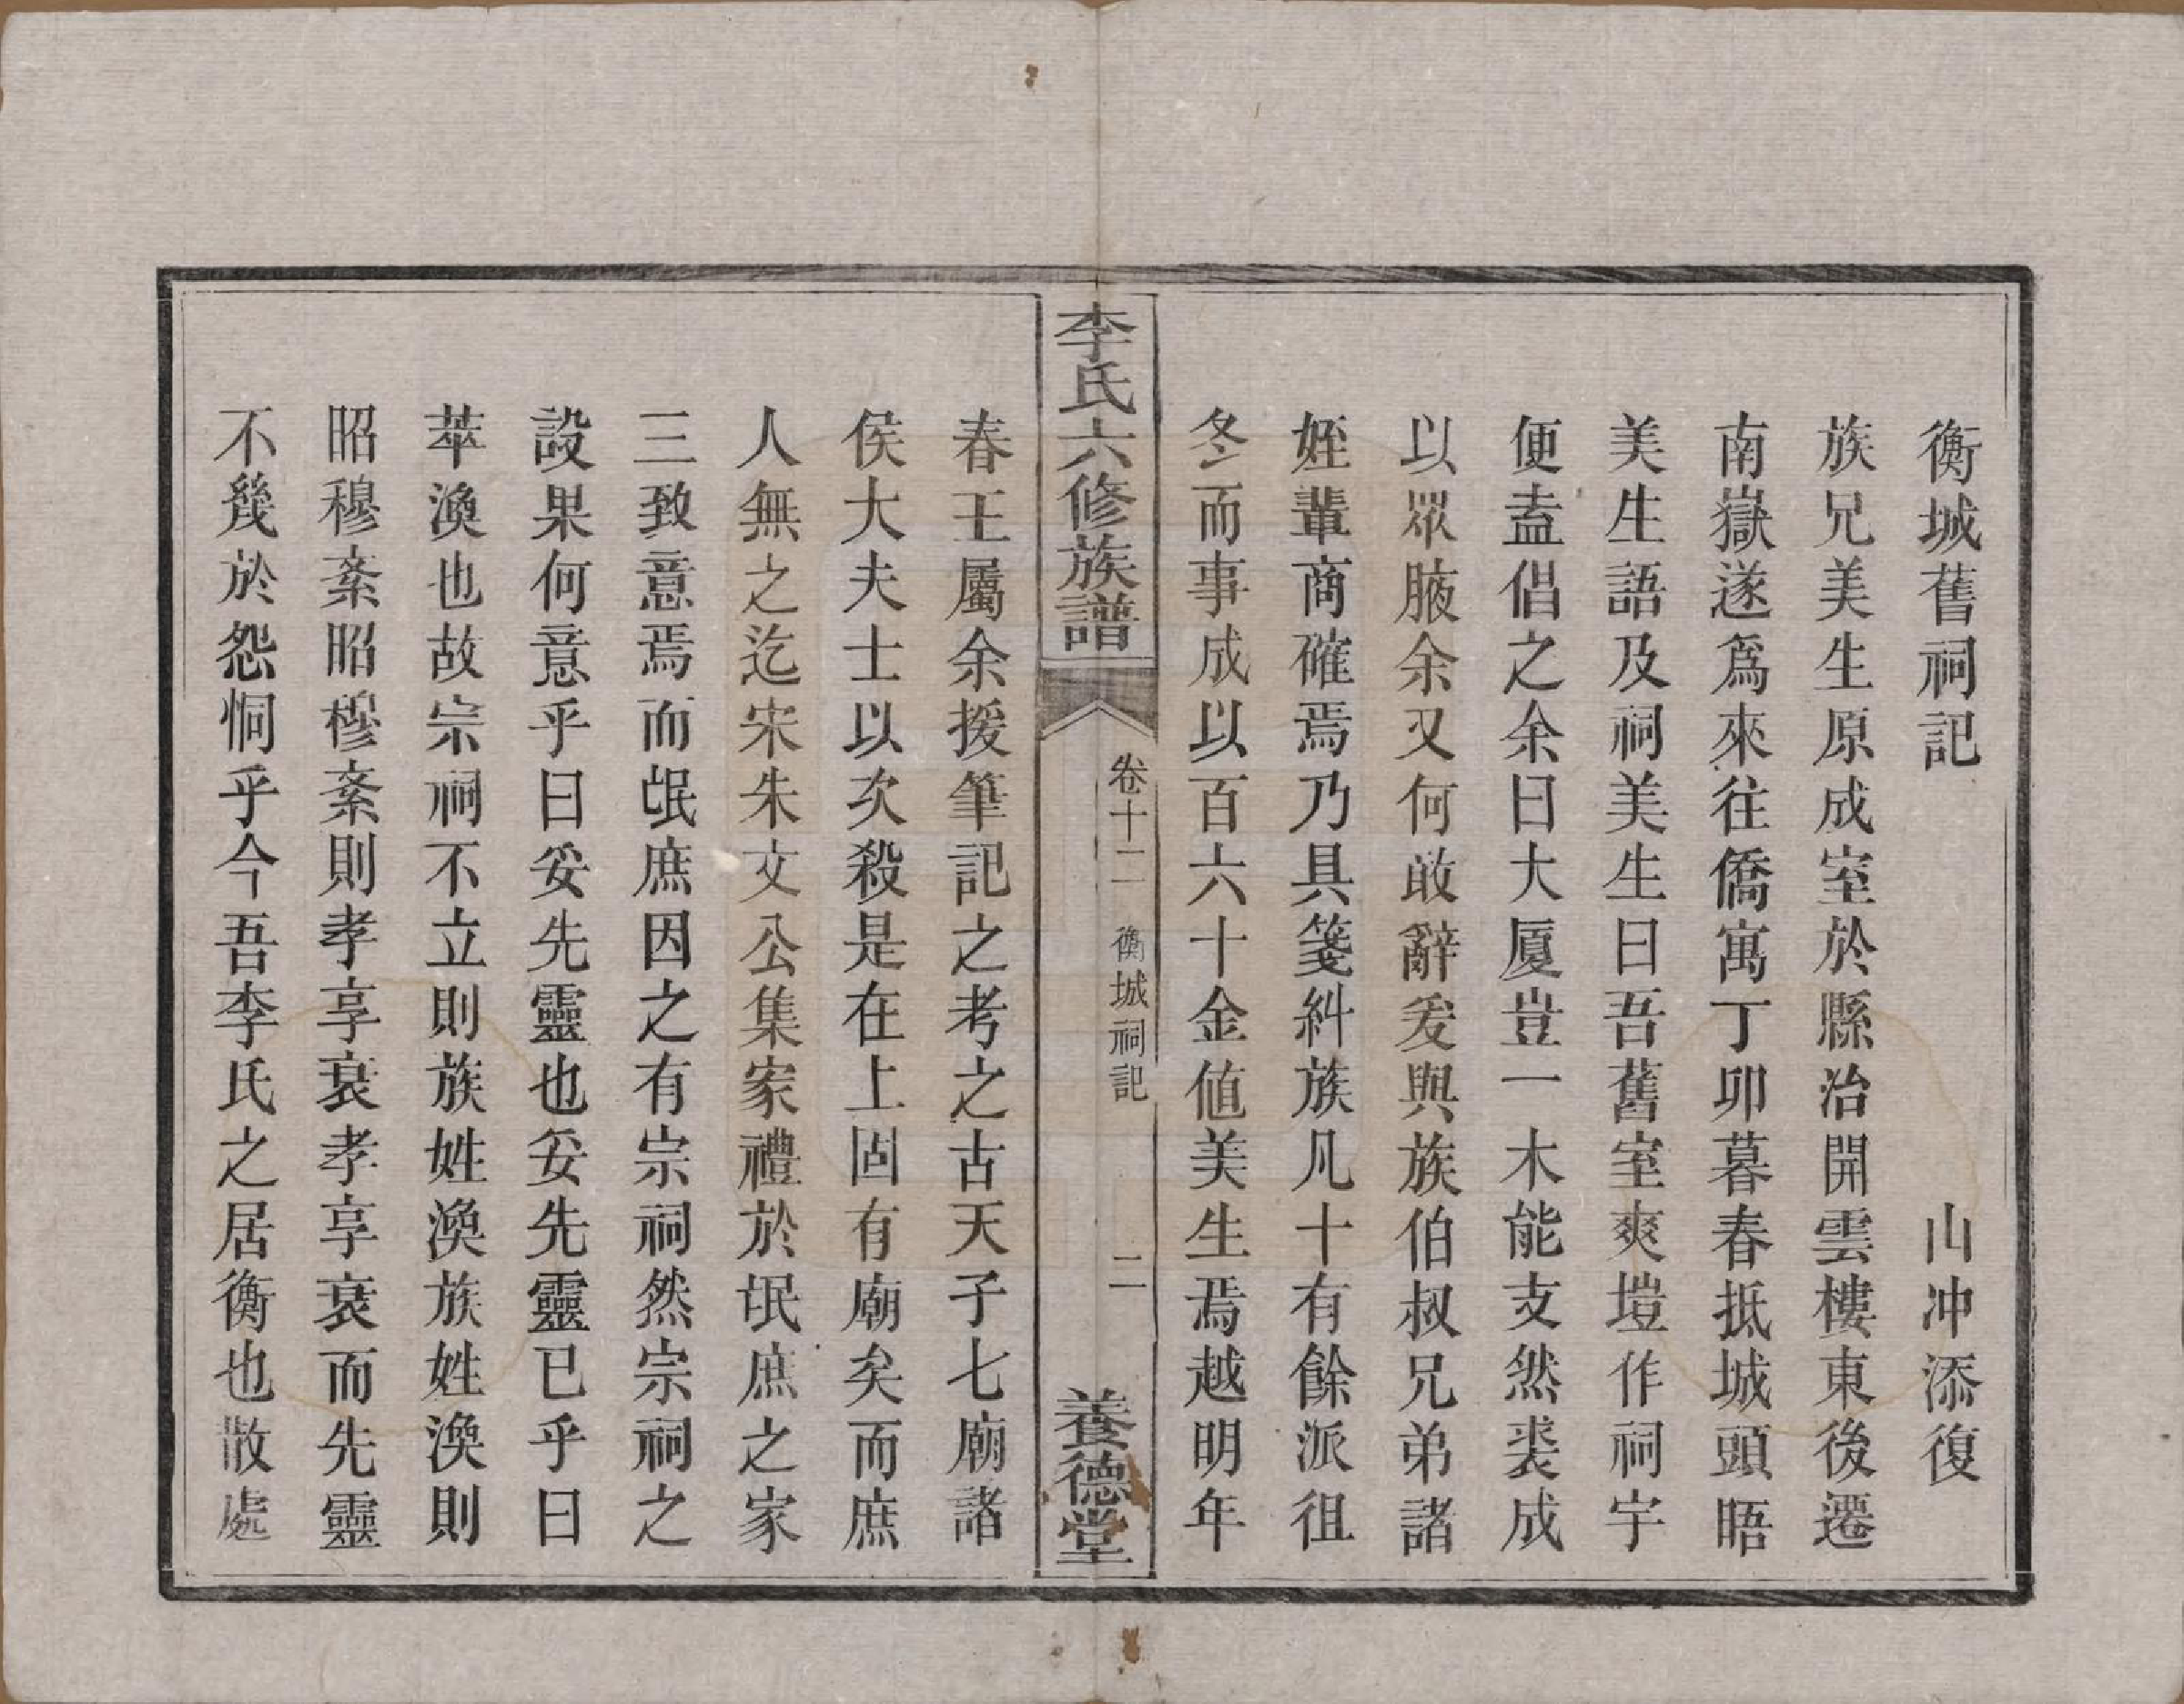 衡城舊祠記　　山冲添復
族兄美生原成室於縣治開雲樓東後遷
南嶽遂爲來往僑寓丁卯暮春抵城頭晤
美生語及祠美生曰吾舊室爽塏作祠宇
便盍倡之余曰大厦豈一木能支然裘成
以眾腋余又何敢辭爰與族伯叔兄弟諸
姪輩商確焉乃具箋糾族凡十有餘派徂
冬而事成以百六十金値美生焉越明年
李氏六修族譜
卷十二　衡城祠記　二
養德堂
春王屬余援筆記之考之古天子七廟諸
侯大夫士以次殺是在上固有廟矣而庶
人無之迄宋朱文公集家禮於氓庶之家
三致意焉而氓庶因之有宗祠然宗祠之
設果何意乎曰妥先靈也妥先靈已乎曰
萃渙也故宗祠不立則族姓渙族姓渙則
昭穆紊昭穆紊則孝享衰孝享衰而先靈
不幾於怨恫乎今吾李氏之居衡也散處